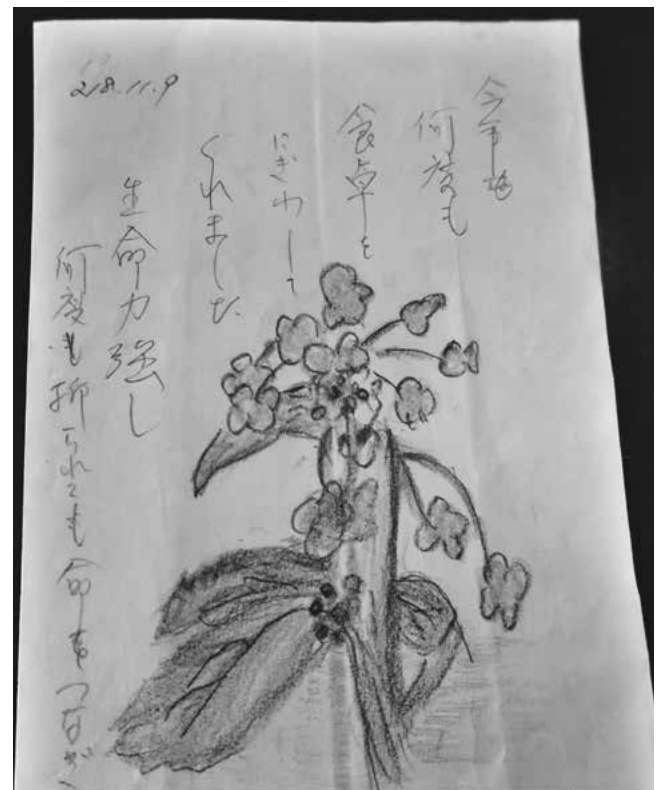 218.11.9
今年も
何度も
食卓を
にぎわして
くれました
生命力強し
何度も抑られても命をつなぎ